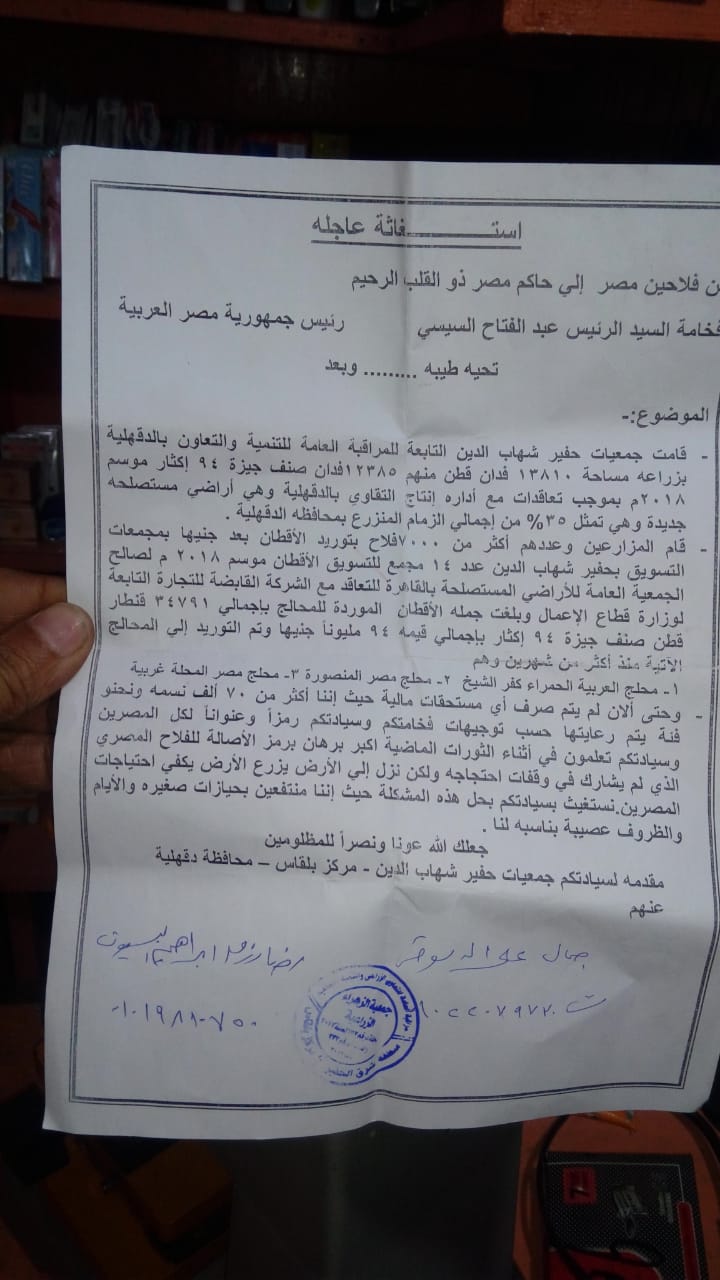 استـــــــــغاثة عاجله
ن فلاحين مصر إلي حاكم مصر ذو القلب الرحيم
فخامة السيد الرئيس عبد الفتاح السيسي رئيس جمهورية مصر العربية
تحيه طيبه ......... وبعد
الموضوع:-
- قامت جمعيات حفير شهاب الدين التابعة للمراقبة العامة للتنمية والتعاون بالدقهلية
بزراعه مساحة ١٣٨١٠ فدان قطن منهم ١٢٣٨٥فدان صنف جيزة ٩٤ إكثار موسم
٢٠١٨م بموجب تعاقدات مع أداره إنتاج التقاوي بالدقهلية وهي أراضي مستصلحه
جديدة وهي تمثل ٣٥% من إجمالي الزمام المنزرع بمحافظه الدقهلية .
- قام المزارعين وعددهم أكثر من ٧٠٠٠فلاح بتوريد الأقطان بعد جنيها بمجمعات
التسويق بحفير شهاب الدين عدد ١٤ مجمع للتسويق الأقطان موسم ٢٠١٨ م لصالح
الجمعية العامة للأراضي المستصلحة بالقاهرة للتعاقد مع الشركة القابضة للتجارة التابعة
لوزارة قطاع الإعمال وبلغت جمله الأقطان الموردة للمحالج بإجمالي ٣٤٧٩١ قنطار
قطن صنف جيزة ٩٤ إكثار بإجمالي قيمه ٩٤ مليوناً جنيها وتم التوريد إلي المحالج
الآتية منذ أكثر من شهرين وهم
١- محلج العربية الحمراء كفر الشيخ ٢- محلج مصر المنصورة ٣- محلج مصر المحلة غربية
- وحتى ألان لم يتم صرف أي مستحقات مالية حيث إننا أكثر من ٧٠ ألف نسمه ونحنو
فئة يتم رعايتها حسب توجيهات فخامتكم وسيادتكم رمزاً وعنواناً لكل المصرين
وسيادتكم تعلمون في أثناء الثورات الماضية اكبر برهان برمز الأصالة للفلاح المصري
الذي لم يشارك في وقفات احتجاجه ولكن نزل إلي الأرض يزرع الأرض يكفي احتياجات
المصرين.نستغيث بسيادتكم بحل هذه المشكلة حيث إننا منتفعين بحيازات صغيره والأيام
والظروف عصيبة بناسبه لنا .
جعلك الله عونا ونصراً للمظلومين
مقدمه لسيادتكم جمعيات حفير شهاب الدين - مركز بلقاس – محافظة دقهلية
عنهم
جمال على
رضا ابراهيم
جمعية الزهراء
الزراعية